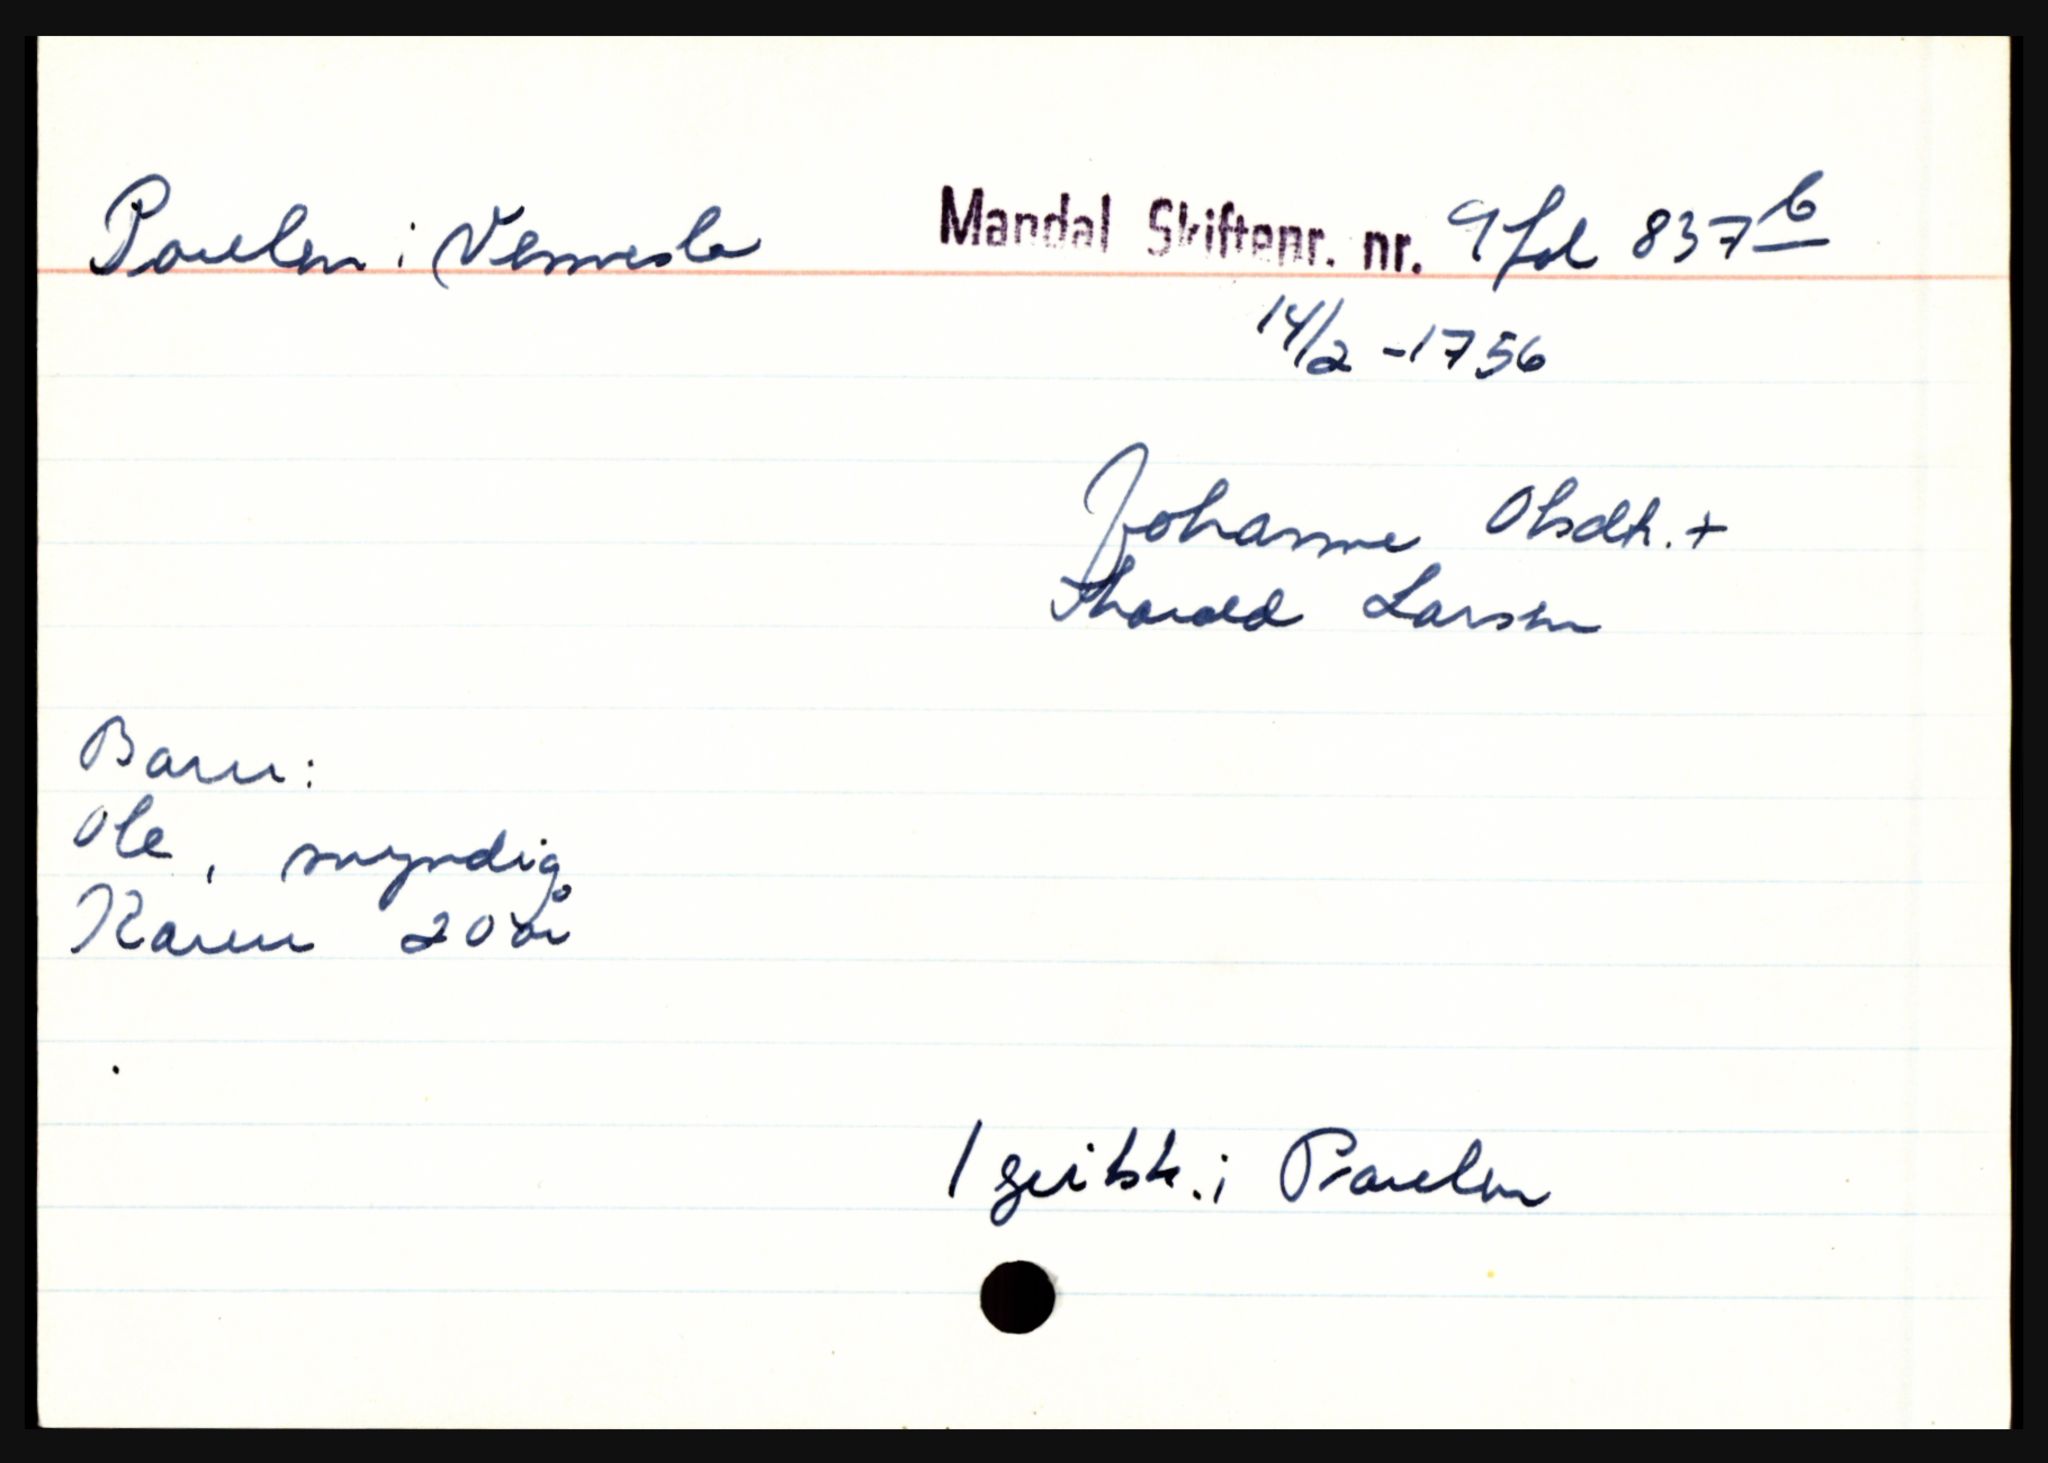 Paulen i Vennesla Mandal Skiftepr. nr. 9 fol 837 b
14/2 - 1756
Johanne Olsdtr. +
Tharald Larsen
Barn:
Ole, myndig
Karen 20 år
i Paulen